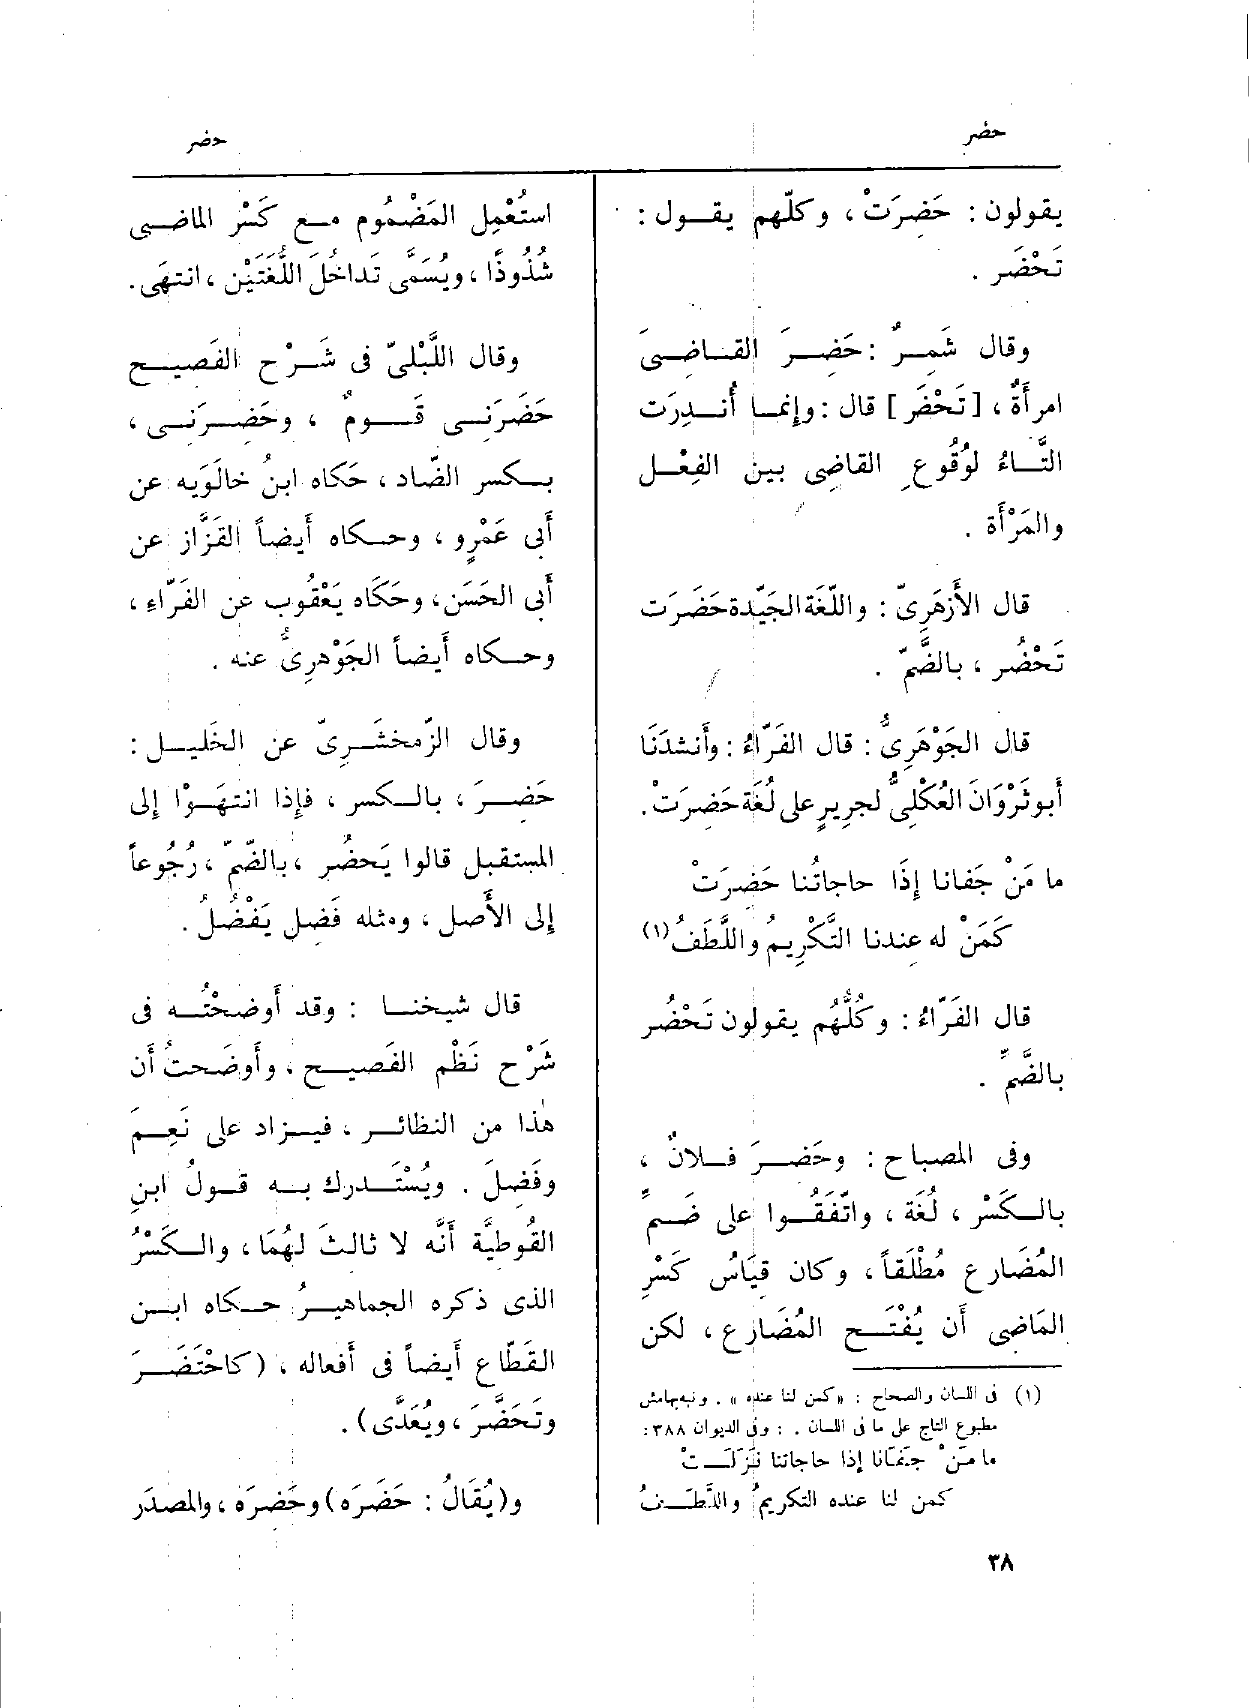 حضر
حضر
يقولون : حَضِرَتْ ، وكلّهم يقول :
تَحْضَر .
وقال شَمِرٌ : حَضِرَ القاضِىَ
امرأَةٌ ، [تَحْضَر] قال : وإنما أُندِرَت
التَّاءُ لوُقُوعِ القاضِى بين الفِعْل
والمَرْأَة .
قال الأَزهَرِىّ : واللّغَة الجَيِّدة حَضَرَت
تَحْضُر ، بالضَّمّ .
قال الجَوْهَرِىُّ : قال الفَرّاءُ : وأَنشدَنَا
أَبو ثَرْوَانَ العُكْلِىُّ لجرِيرٍ على لُغَة حَضِرَتْ .
ما مَنْ جَفانا إِذَا حاجاتُنا حَضِرَتْ
كَمَنْ له عِندنا التَّكْرِيمُ واللَّطَفُ (١)
قال الفَرّاءُ : وكُلُّهم يقولون تَحْضُر
بالضَّمِّ .
وفى المصباح : وحَضِرَ فلانٌ ،
بالكَسْرِ ، لُغَة ، واتَّفَقُوا على ضَمِّ
المُضَارع مُطْلَقاً ، وكان قِيَاسُ كَسْرِ
المَاضِى أَن يُفْتَح المُضَارع ، لكن
(١) فى اللسان والصحاح : «كمن لنا عنده» . ونبه بهامش
مطبوع التاج على ما فى اللسان . : وفى الديوان ٣٨٨ :
ما مَنْ جَفَانا إذا حاجاتنا نَزَلَتْ
كمن لنا عنده التكريمُ واللَّطَفُ
استُعْمِل المَضْمُوم مع كَسْرِ الماضِى
شُذُوذًا ، ويُسَمَّى تَداخُلَ اللُّغَتَيْن ، انتهَى .
وقال اللَّبْلىّ فى شَرْح الفَصِيح
حَضَرَنِى قَومٌ ، وحَضِرَنِى ،
بكسر الضّاد ، حَكاه ابنُ خالَوَيه عن
أَبى عَمْرٍو ، وحكاه أَيضاً القَزَّاز عن
أَبى الحَسَن ، وحَكَاه يَعْقُوب عن الفَرّاءِ ،
وحكاه أَيضاً الجَوْهرِىُّ عنه .
وقال الزّمخشَرِىّ عن الخَلِيل :
حَضِرَ ، بالكسر ، فإِذا انتهَوْا إِلى
المستقبل قالوا يَحضُر ، بالضّمّ ، رُجُوعاً
إِلى الأَصل ، ومثله فَضِل يَفْضُلُ .
قال شيخنا : وقد أَوضحْتُه فى
شَرْح نَظْم الفَصِيح ، وأَوضحتُ أَن
هٰذا من النظائر ، فيزاد على نَعِمَ
وفَضِلَ . ويُسْتَدرك به قولُ ابنِ
القُوطِيَّة أَنَّه لا ثالثَ لهُمَا ، والكَسْرُ
الذى ذكره الجماهيرُ حكاه ابن
القَطّاع أَيضاً فى أَفعاله ، (كاحْتَضَرَ
وتَحَضَّرَ ، ويُعَدَّى) .
و(يُقَالُ : حَضَرَه) وحَضِرَه ، والمصدَر
٣٨